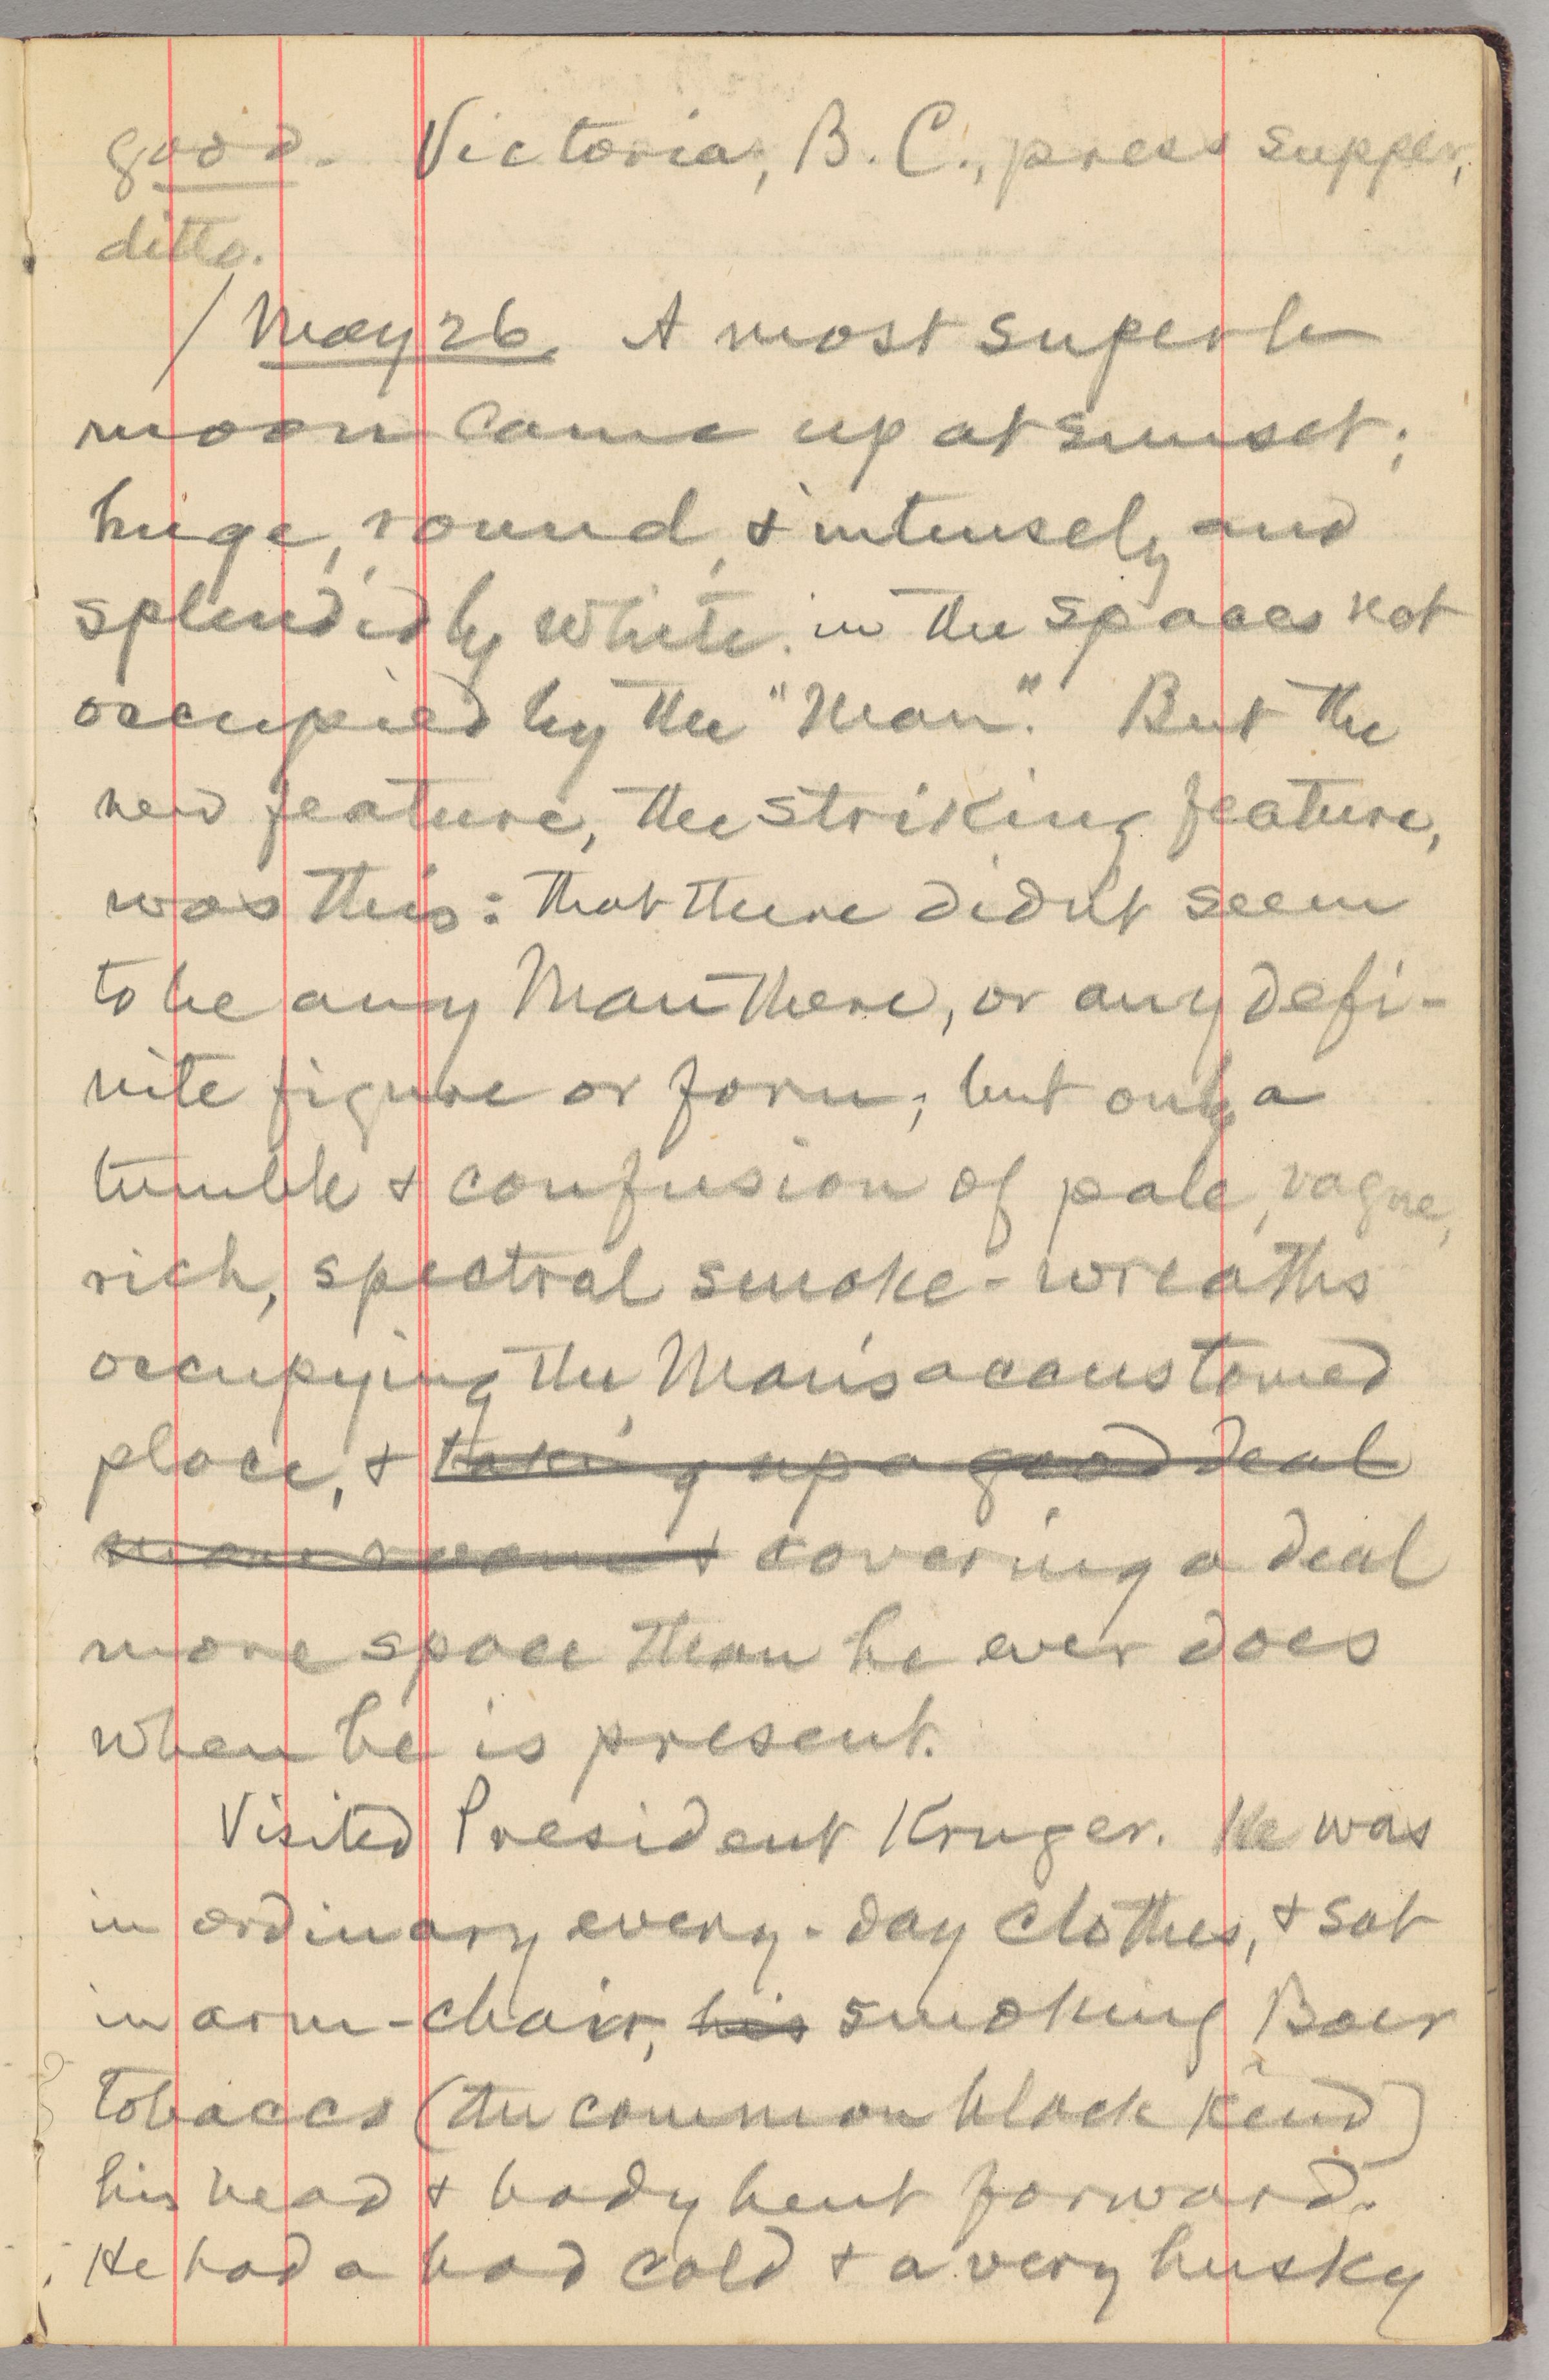 good. Victoria, B. C., press supper,
ditto.
/ May 26. A most superb
moon came up at sunset;
huge, round, & intensely and
splendidly white. in the spaces not
occupied by the "Man." But the
new feature, the striking feature,
was this: that there didn't seem
to be any Man there, or any defi-
nite figure or form; but only a
tumble & confusion of pale, vague,
rich, spectral smoke-wreaths
occupying the Man's accustomed
place, & taking up a good deal
more room & covering a deal
more space than he ever does
when he is present.
Visited President Kruger. He was
in ordinary every-day clothes, & sat
in arm-chair, his smoking Boer
tobacco (the common black kind)
his head & body bent forward.
He had a bad cold & a very husky